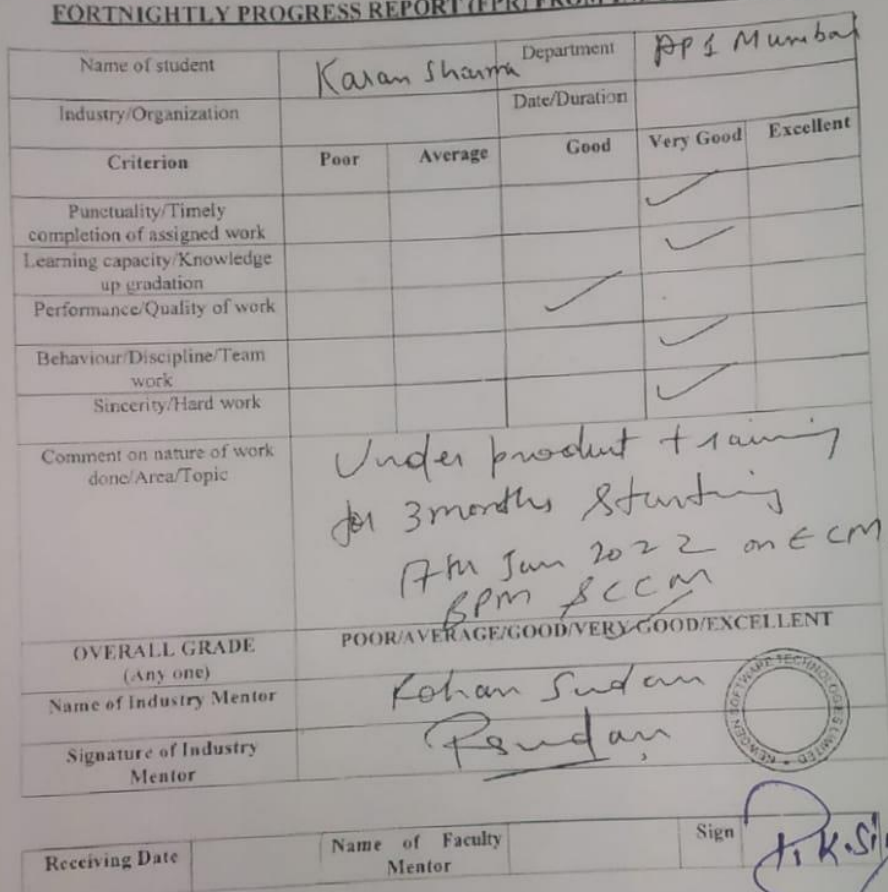 FORTNIGHTLY PROGRESS REPORT (FPR) FROM
Name of student Karan Sharma Department AP1 Mumbai
Industry/Organization Date/Duration
Criterion Poor Average Good Very Good Excellent
Punctuality/Timely
completion of assigned work
Learning capacity/Knowledge
up gradation
Performance/Quality of work
Behaviour/Discipline/Team
work
Sincerity/Hard work
Comment on nature of work
done/Area/Topic
Under product training
for 3 months Starting
17th Jan 2022 on ECM
BPM & CCM
OVERALL GRADE
(Any one)
POOR/AVERAGE/GOOD/VERY GOOD/EXCELLENT
Name of Industry Mentor Rohan Sudan
Signature of Industry
Mentor
RSudan
NEWGEN SOFTWARE TECHNOLOGIES LIMITED
Receiving Date
Name of Faculty
Mentor
Sign P.K.Si